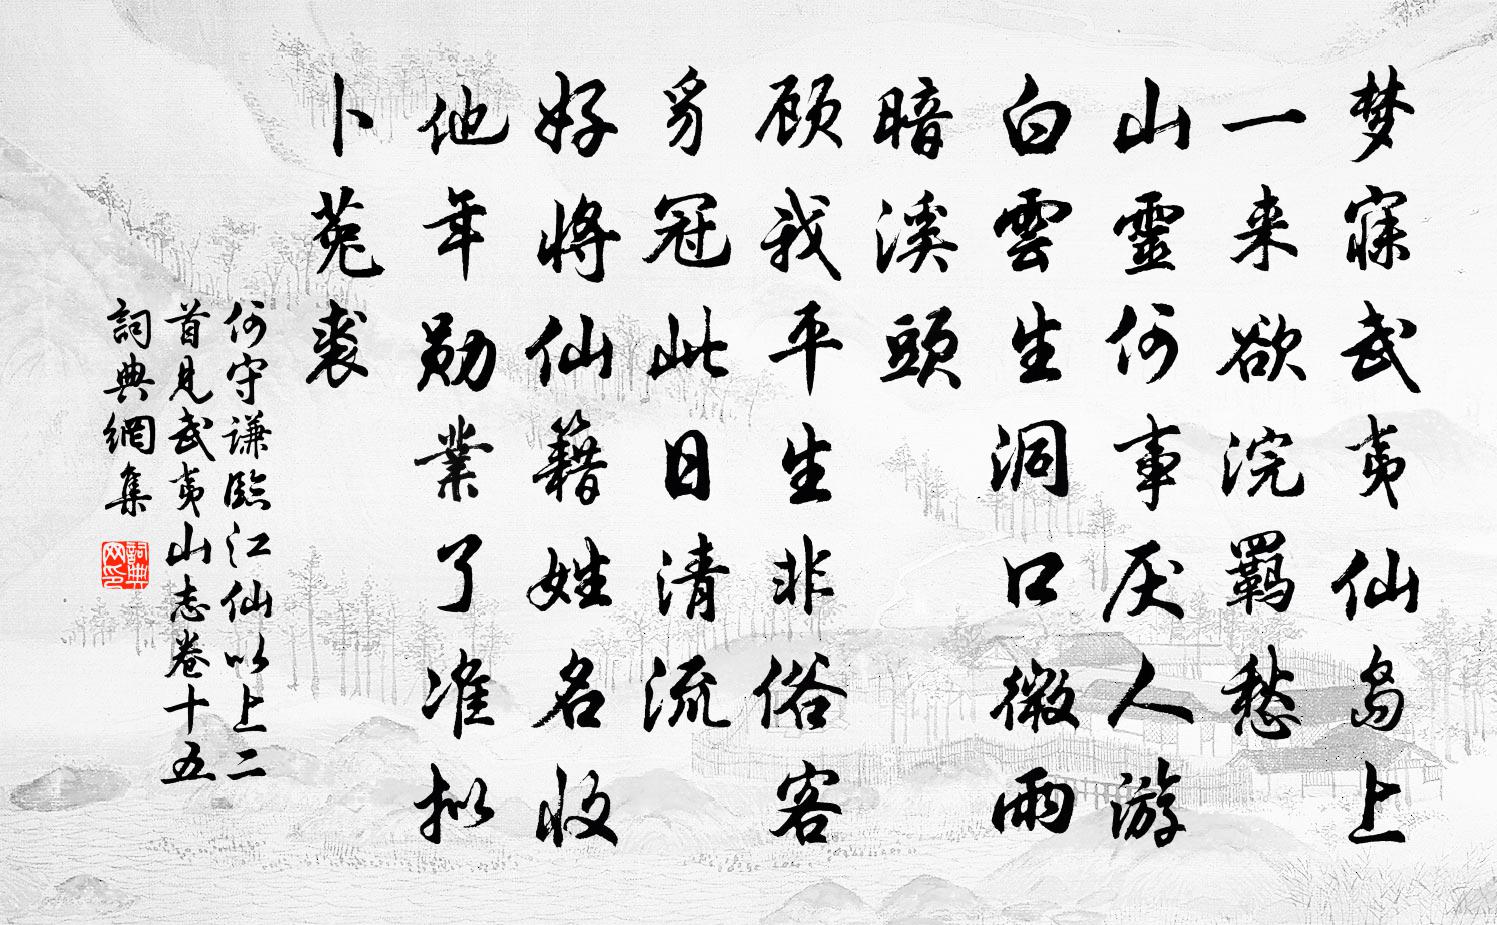 梦寐武夷仙岛上
一来欲浣羁愁
山靈何事厌人游
白雲生洞口微雨
暗溪頭
顾我平生非俗客
豸冠此日清流
好将仙籍姓名收
他年勋業了准拟
卜菟裘
何守謙臨江仙以上二
首見武夷山志卷十五
詞典網集
詞典网印